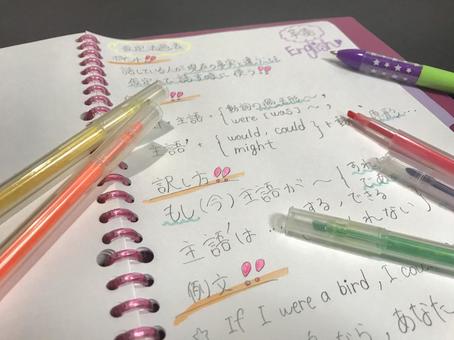 英語
English
仮定法過去
ポイント!!
話している人が現在の事実と違うことを
仮定して話す時に使う!!
主語+{動詞の過去形~,
were [was] ~,
主語'+{would, could
might}+動 原形...
訳し方!!
もし(今)主語が~{すれ
であ
主語'は...する,できる
れない}
例文!!
☆ If I were a bird, I cou
なら, あなた